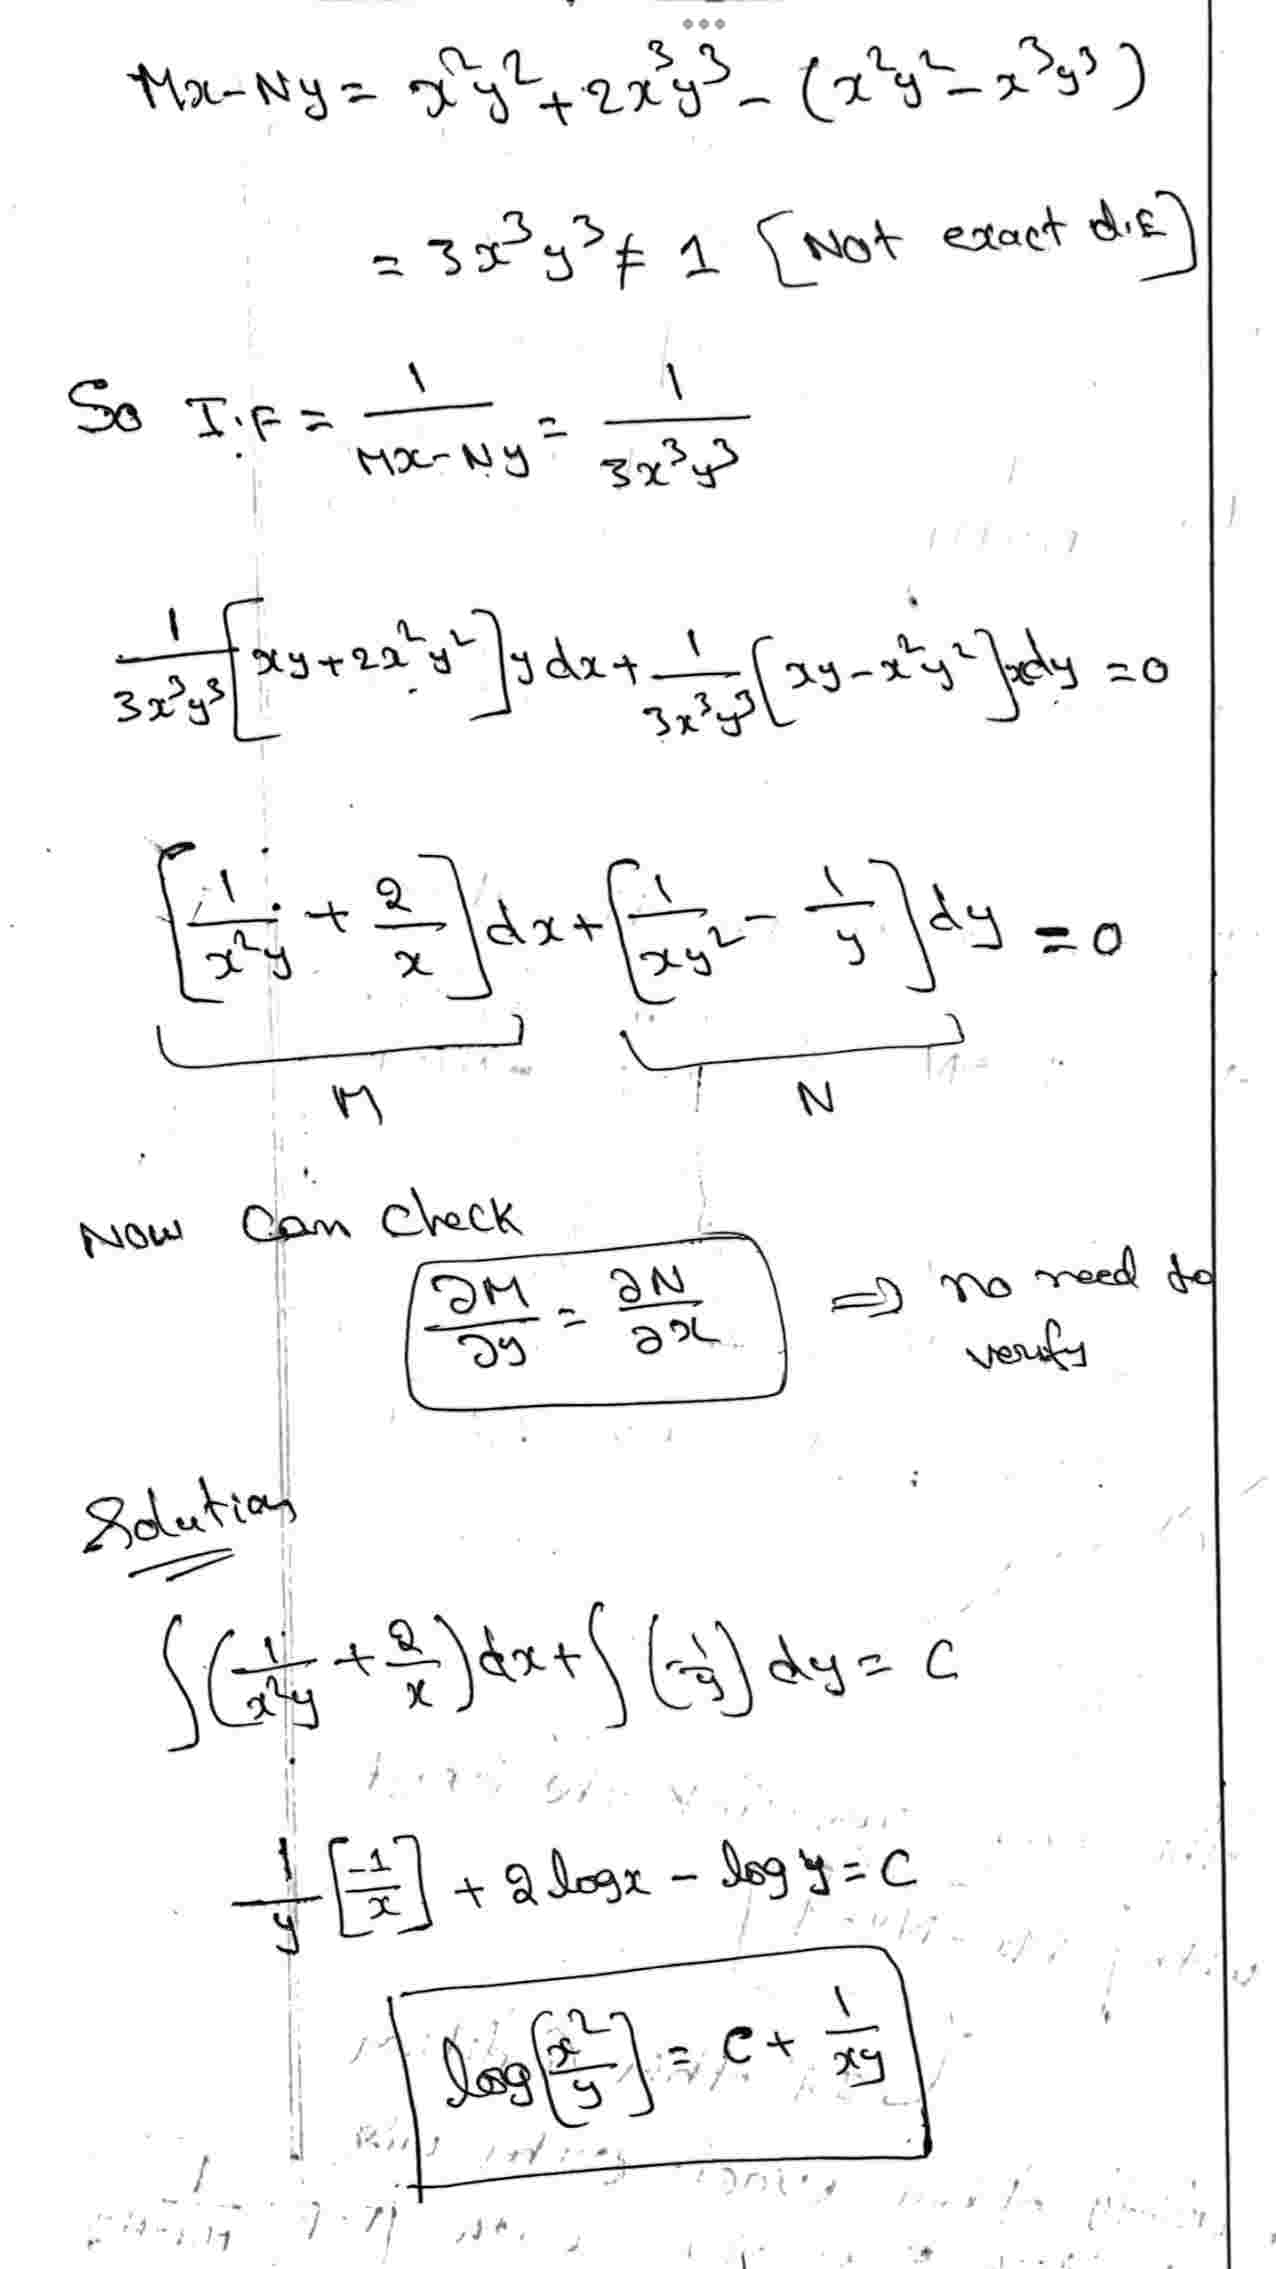 Mx-Ny = x²y² + 2x³y³ - (x²y² - x³y³)
= 3x³y³ ≠ 1 [Not exact d.E]
So I.F = 1/(Mx-Ny) = 1/(3x³y³)
1/(3x³y³) [xy + 2x²y²] y dx + 1/(3x³y³) [xy - x²y²] x dy = 0
[1/(x²y) + 2/x] dx + [1/(xy²) - 1/y] dy = 0
M N
Now can check
∂M/∂y = ∂N/∂x ⇒ no need to
verify
Solution
∫(1/(x²y) + 2/x) dx + ∫(-1/y) dy = C
1/y [-1/x] + 2 log x - log y = C
log[x²/y] = C + 1/(xy)